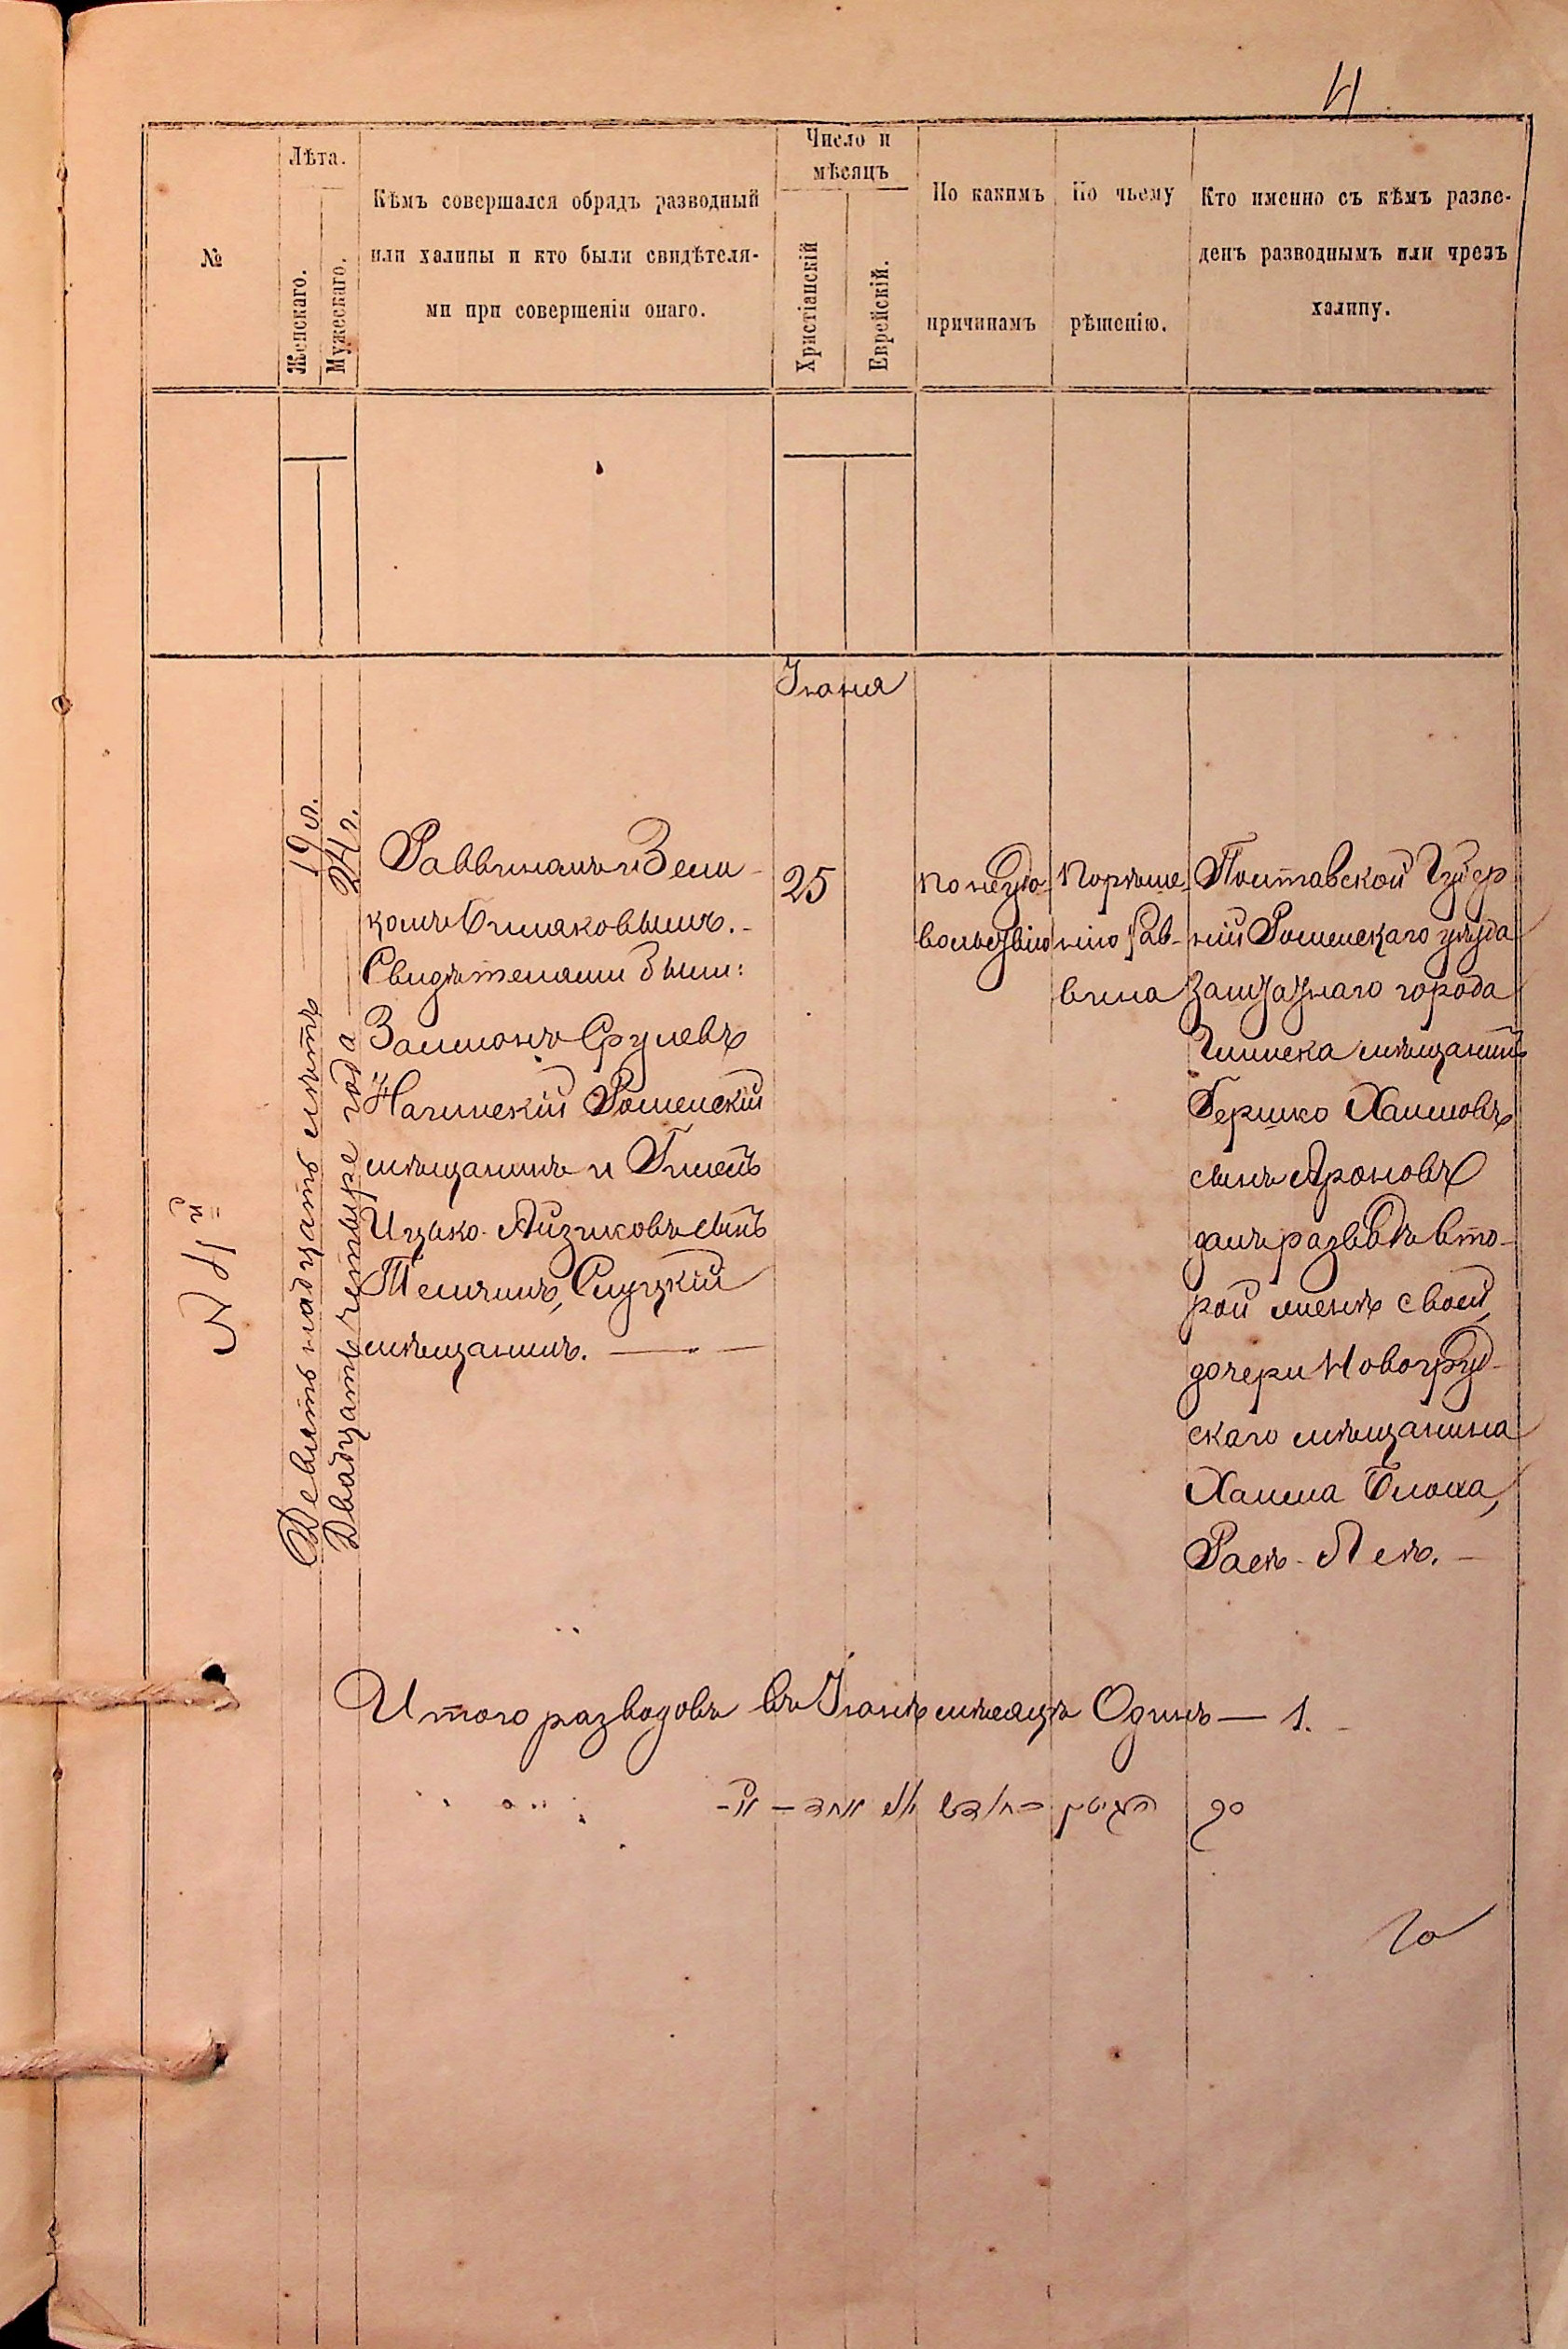 4
№
Лѣта.
Женскаго.
Мужескаго.
Кѣмъ совершался обрядъ разводный
или халицы и кто были свидѣтеля-
ми при совершеніи онаго.
Число и
мѣсяцъ
Христіанскій
Еврейскій.
По какимъ
причинамъ
По чьему
рѣшенію.
Кто именно съ кѣмъ разве-
денъ разводнымъ или чрезъ
халицу.
Іюня
Девятнадцать лѣтъ 19 л.
Двадцать четыре года 24 г.
Раввиномъ Зели-
комъ
Свидѣтелями были:
Залманъ Срулевъ
Роменскій
мѣщанинъ и
Ицко Айзиковъ сынъ
Слуцкій
мѣщанинъ.
25
По неудо-
вольствію
По рѣше-
нію Рав-
вина
Полтавской Губер
ніи Роменскаго уѣзда
Заштатнаго города
Глинска мѣщанинъ
Гершко Хаимовъ
сынъ Ароновъ
далъ разводъ вто-
рой женѣ своей,
дочери Новогруд-
скаго мѣщанина
Хаима Блоха,
Расѣ-Леѣ.
Итого разводовъ въ Іюнѣ мѣсяцѣ Одинъ — 1.
סך הגיטין בחודש יולי אחד — א'